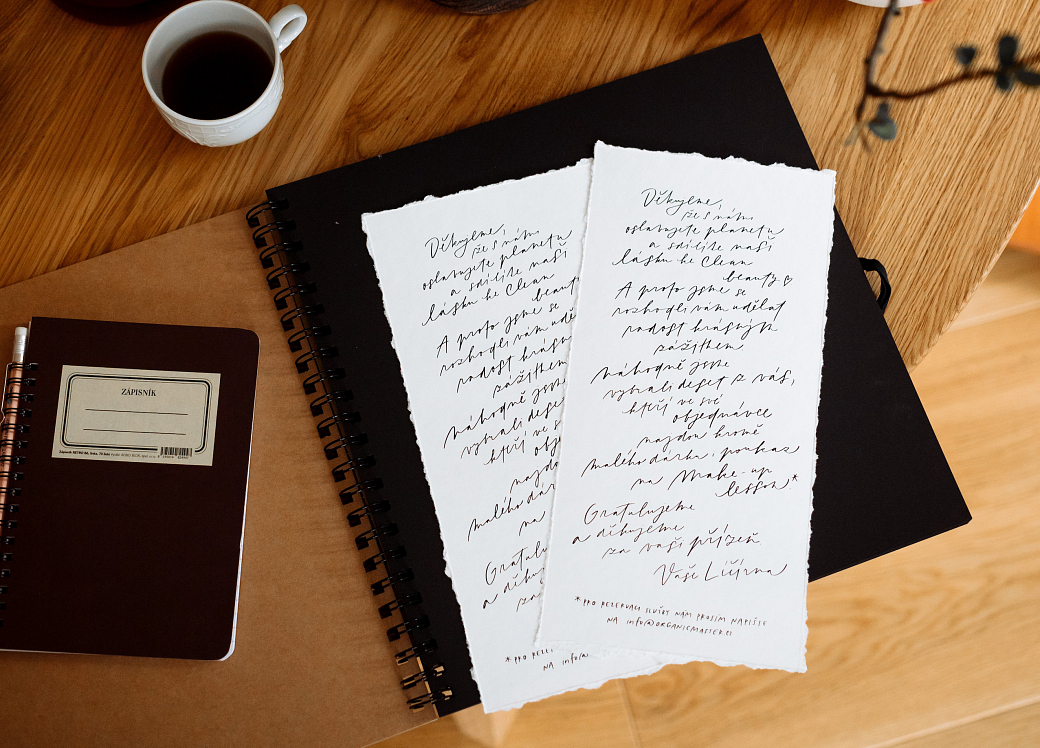 ZÁPISNÍK
Děkujeme,
že s námi
oslavujete planetu
a sdílíte naši
lásku ke Clean
beaut
A proto jsme se
rozhodli vám udě
radost krásným
zážitkem
náhodně jsme
vybrali deset
kteří ve s
obj
najdo
malého dár
na
Gratulu
a děku
za
*PRO REZE
NA info@
Děkujeme,
že s námi
oslavujete planetu
a sdílíte naši
lásku ke Clean
beauty ♡
A proto jsme se
rozhodli vám udělat
radost krásným
zážitkem
náhodně jsme
vybrali deset z vás,
kteří ve své
objednávce
najdou kromě
malého dárku, poukaz
na Make-up
lesson*
Gratulujeme
a děkujeme
za vaši přízeň.
Vaše Líčírna
*PRO REZERVACI SLUŽBY NÁM PROSÍM NAPIŠTE
NA info@ORGANICMASTER.CZ